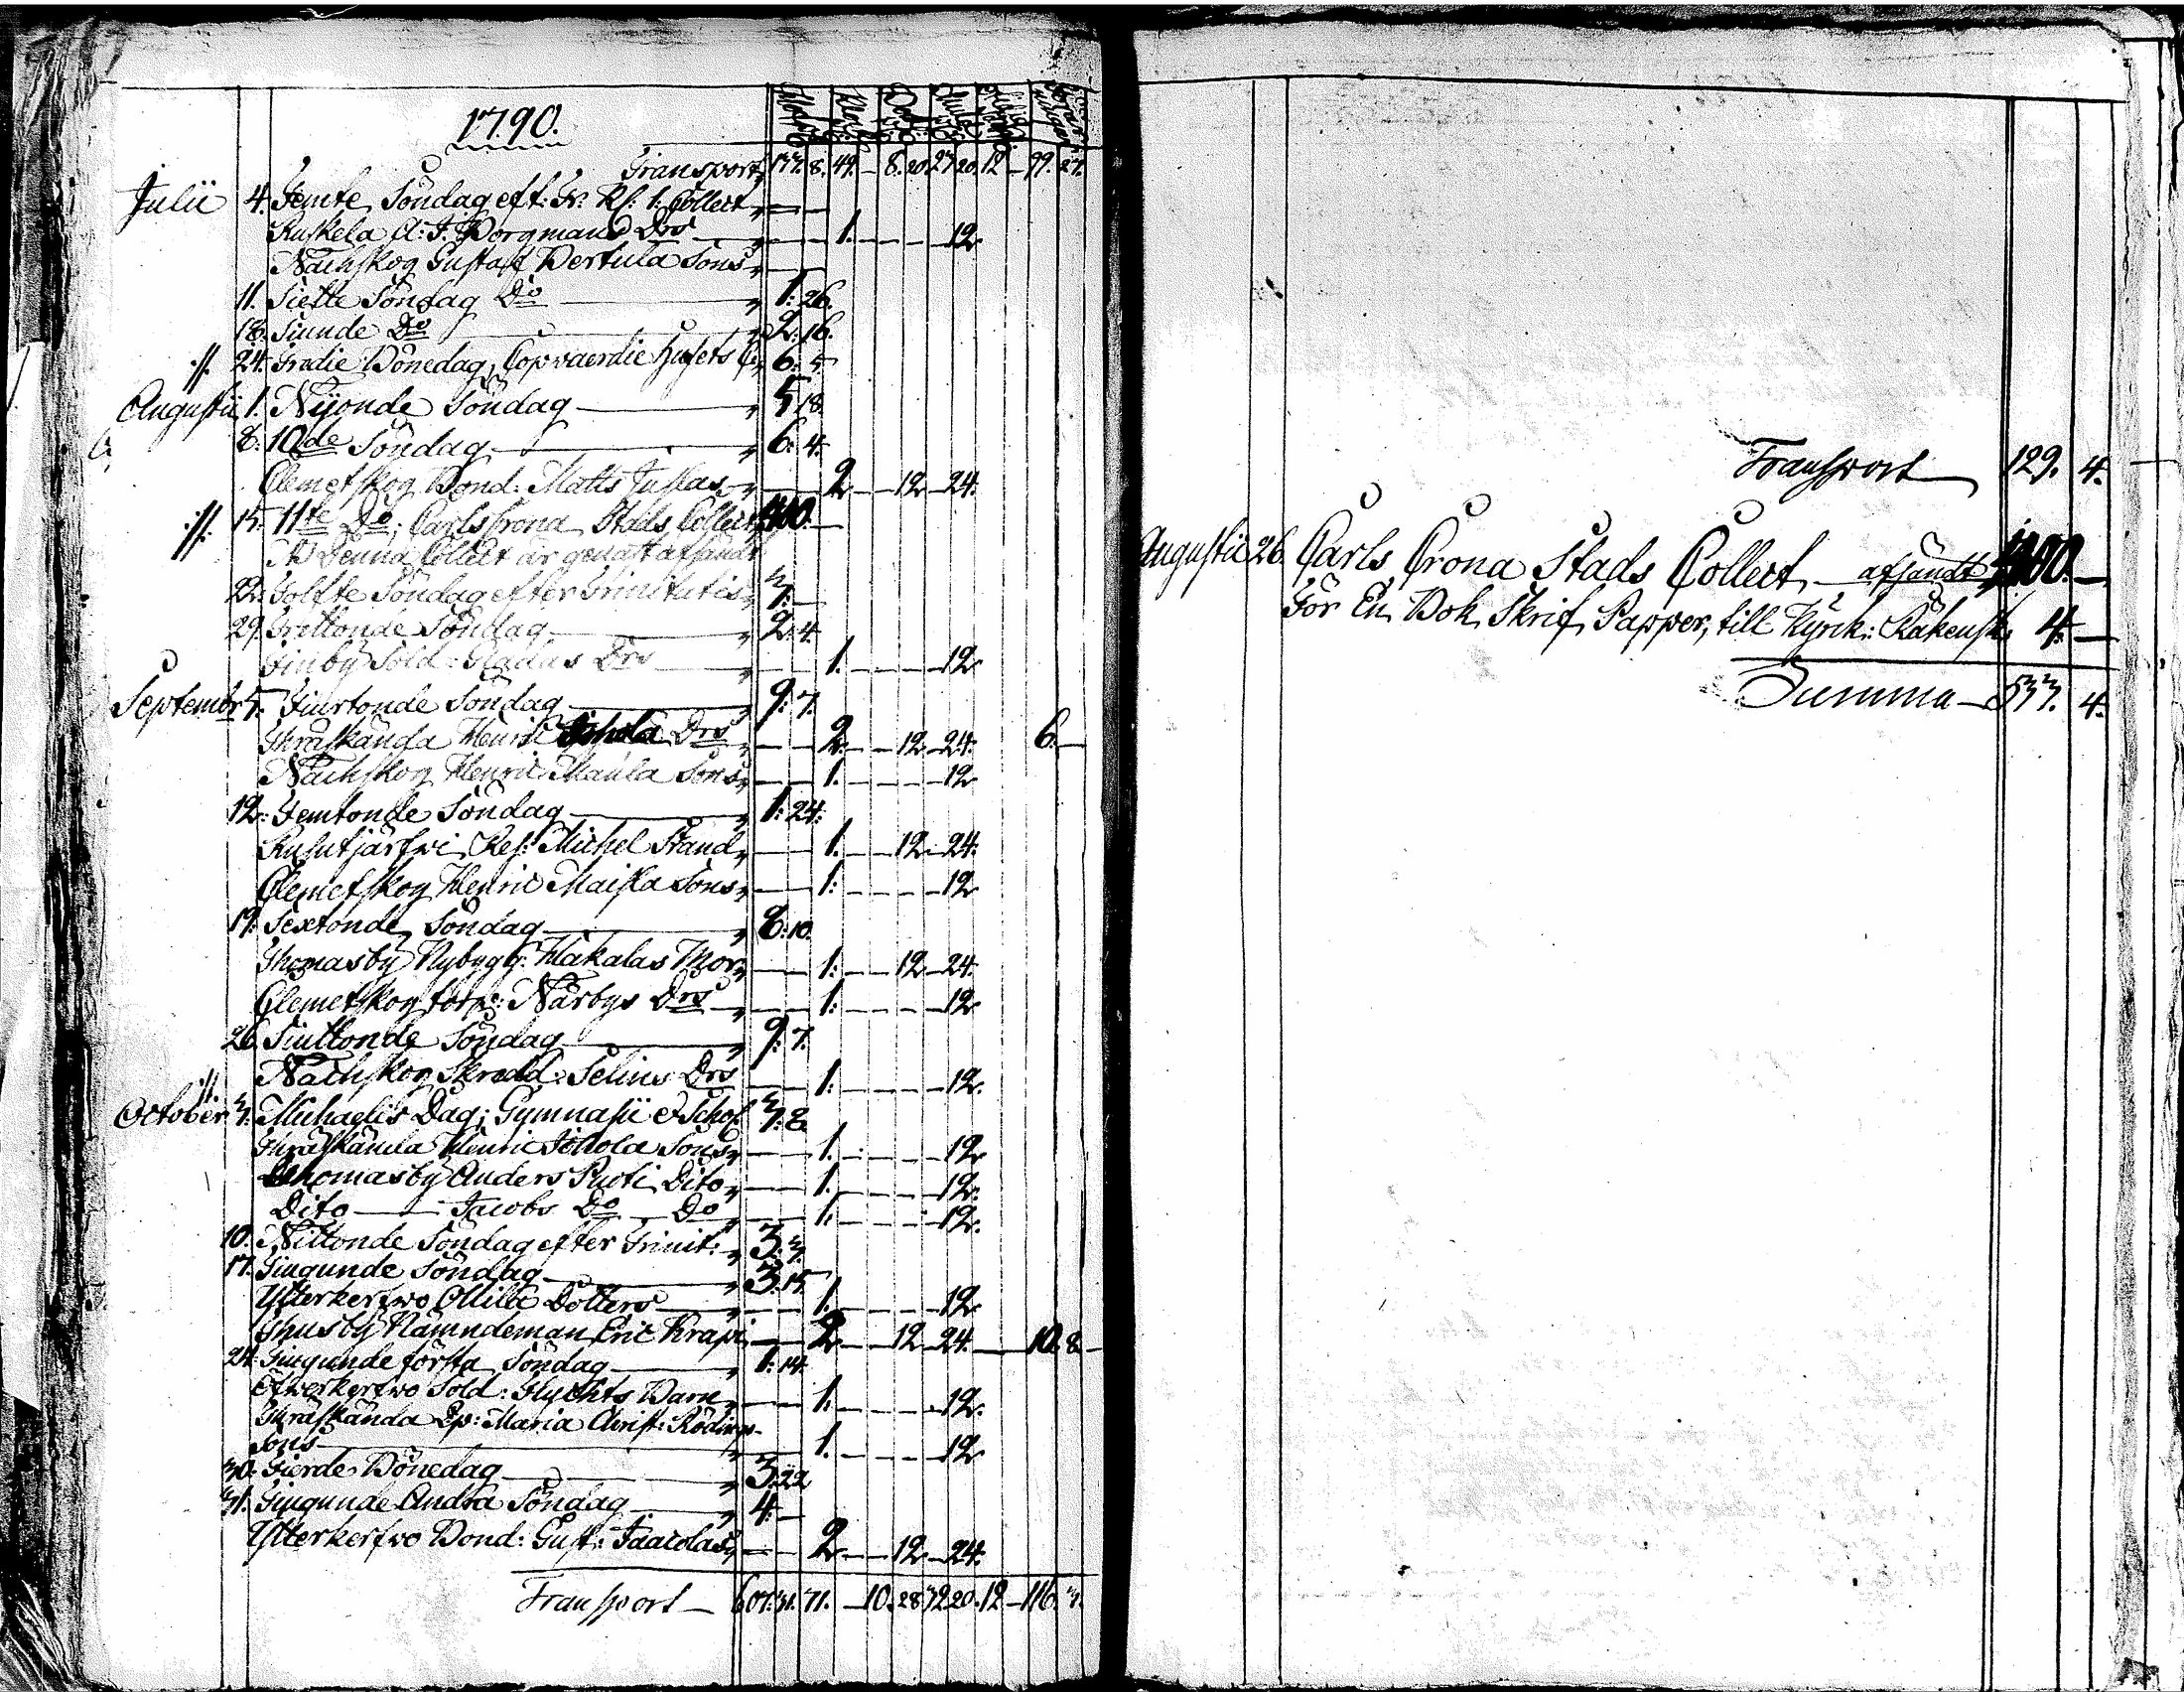 1790.
Transport 177. 8. 49. — 8. 20. 27 20. 12 — 99. 27.
Julii 4. Femte Söndag eft: Tr: Rf: 1: Collect — —
Kuskela A: J. Borgmans Drs — 1. — 12
Nachskog Gustaf Bertula Sons — —
11. Siette Söndag Do — 1: 26.
18. Siunde Do — 2: 16.
.//. 24. Tredie Bönedag, Copvaerdie Husets C. 6: 5
Augustii 1. Nijonde Söndag — 5 18.
8. 10de Söndag — 6: 4.
Clemetskog Bond: Matts Juskas — 2 — 12 — 24.
.//. 15. 11te Do; Carlscrona Stads Collect 400. —
NB Denna Collect är genast afsändt
22. Tolfte Söndag efter Trinitatis 3. —
29. Trettonde Söndag — 2. 4.
Finby Sold: Gladas Drs — 1. — 12
Septembr 5. Fiurtonde Söndag — 9: 7.
Thräskända Henric Drs — 2. — 12 — 24. 6. —
Nachskog Henric Maula Sons — 1. — 12
12. Femtonde Söndag — 1: 24.
Kusutjärfwi Ref: Michel Strand — 1. — 12. 24.
Clemetskog Henric Maiska Sons — 1: — 12
19. Sextonde Söndag — 8: 10.
Thomasby Nybygg: Hakalas Mor — 1: — 12 — 24.
Clemetskog torp: Närbys Drs — 1: — 12
26. Siuttonde Söndag — 9: 7.
Nachskog Skredd: Selins Drs — 1: — 12.
.//.
October 3. Michaelis Dag; Gymnasii & Schol. 3: 8.
Thräskända Henric Jokola Sons — 1. — 12
Thomasby Anders Puoti Dito — 1. — 12.
Dito — Jacobs Do — Do — 1. — 12.
10. Nittonde Söndag efter Trinit: 3: 3.
17. Tiugunde Söndag — 3. 15
Ytterkerfwo Ollila Dotters — 1. — 12
Thusby Nämndeman Eric Krapi — 2 — 12 — 24. — 10. 8 —
24. Tiugunde första Söndag — 1: 14.
Ofwerkerfwo Sold: Flychts Barn — 1. — 12.
Thräskända Ep: Maria Christ: Rödings
Sons — 1. — 12
30. Fierde Bönedag — 3: 22
31. Tiugunde Andra Söndag — 4. —
Ytterkerfwo Bond: Gust: Jaacolas — 2 — 12 — 24.
Transport — 607. 31. 71. — 10. 28 32 20. 12 — 116. 3.
Transport 129. 4.
Augustii 26. Carls Crona Stads Collect — afsändt 400. —
För En Bok Skrif Papper, till Kyrk: Räkensk. 4. —
Summa — 533. 4.